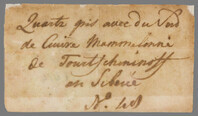 Quartz gris avec du Verd
de Cuivre Mammelonné
de Tourtscheninoff
en Sibérie
N.º